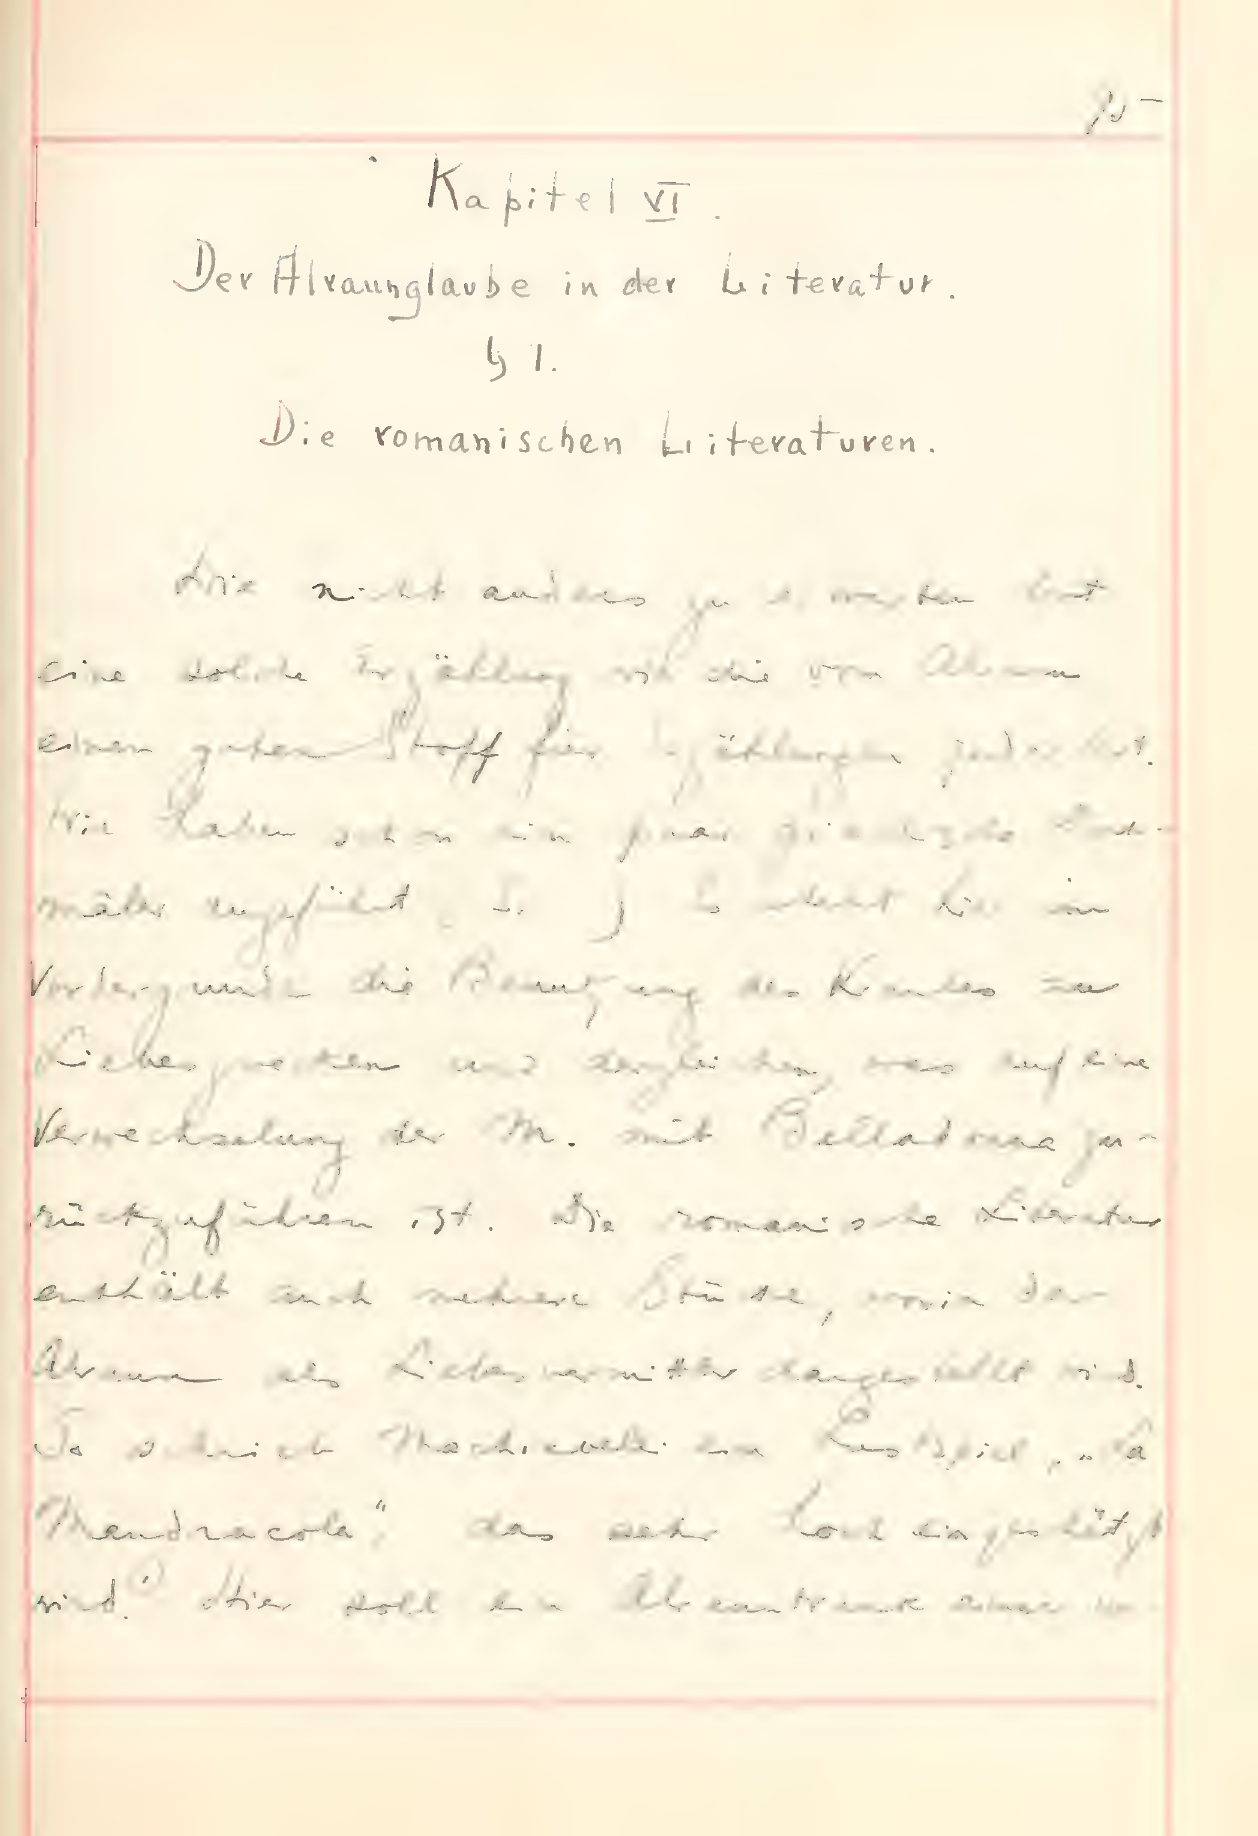 Kapitel VI.
Der Alraunglaube in der Literatur.
§ 1.
Die romanischen Literaturen.
Wie nicht anders zu erwarten hat
eine solche Erzählung wie die vom Alraun
einen guten Stoff für Erzählungen
Wir haben schon ein paar
mäler angeführt, S. ) Es steht hier im
Vordergrunde die Benutzung des Krautes zu
Liebeszwecken und dergleichen, was auf eine
Verwechselung der M. mit Belladonna zu-
rückzuführen ist. Die romanische Literatur
enthält auch mehrere Stücke, worin der
Alraun als Liebesvermittler dargestellt wird.
So schrieb Machiavelli ein Lustspiel, „La
Mandracola", das sehr hoch eingeschätzt
wird.¹) Hier soll ein Alrauntrank einer